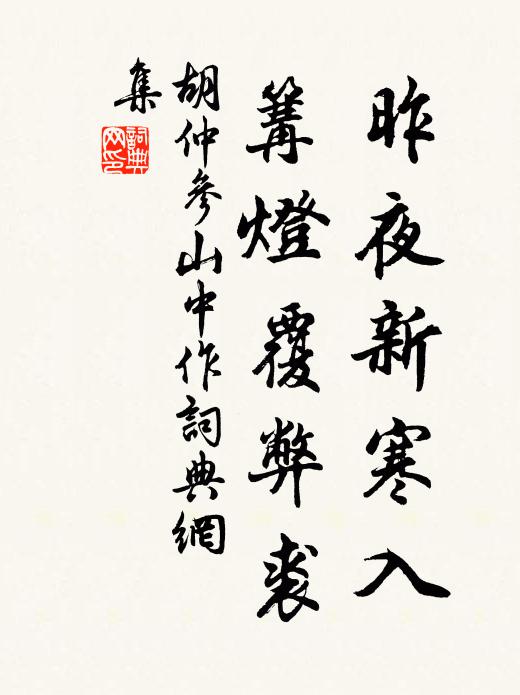 昨夜新寒入
篝燈覆弊裘
胡仲參山中作詞典網
集
詞典網印